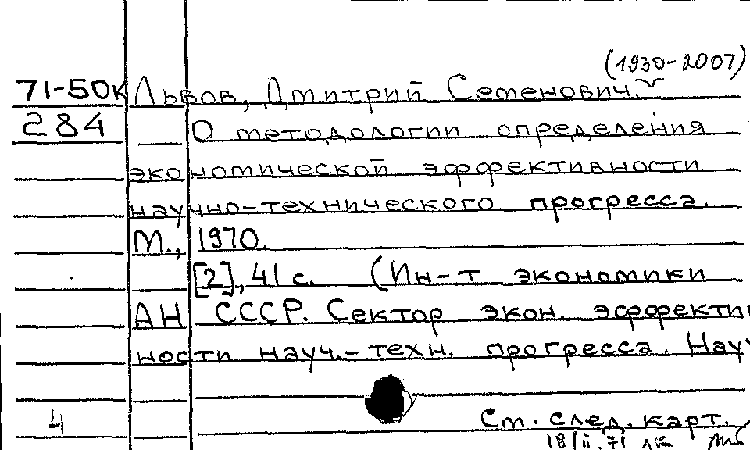 (1930-2007)
71-50к Львов, Дмитрий Семенович.
284 О методологии определения
экономической эффективности
научно-технического прогресса.
М., 1970.
[2], 41 с. (Ин-т экономики
АН СССР. Сектор экон. эффектив
ности науч.-техн. прогресса. Науч
4 См. след. карт.
18/II.71